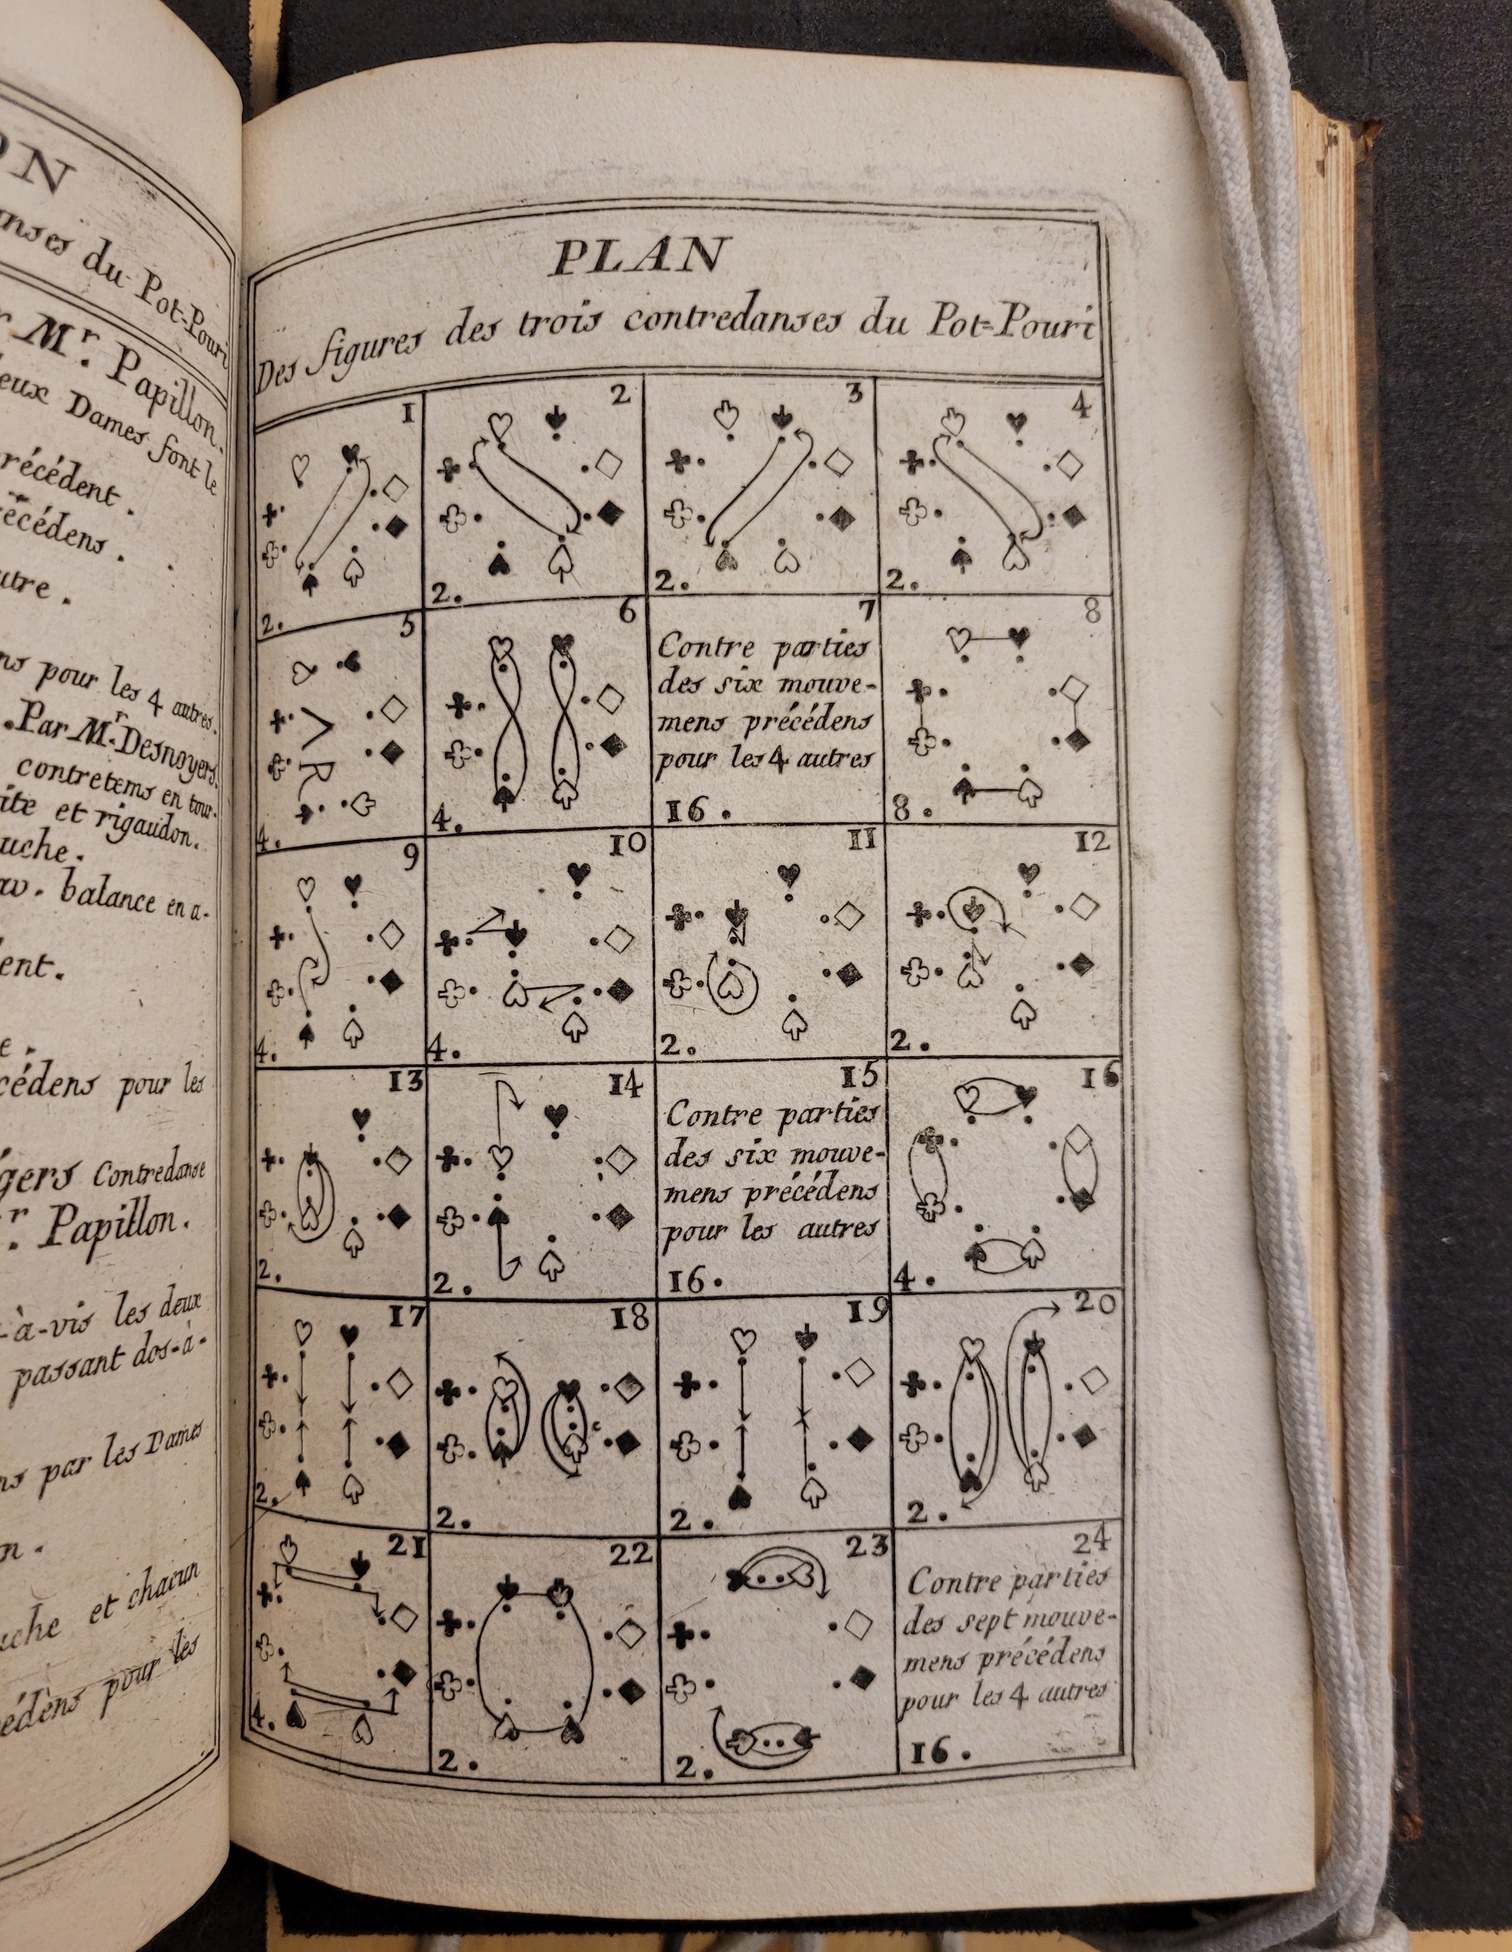 ON
nses du Pot-Pouri
Mr. Papillon.
eux Dames font le
récédent.
écédens.
utre.
ns pour les 4 autres.
. Par Mr. Desnoyers.
contretems en tour-
ite et rigaudon.
uche.
av. balance en a-
ent.
e.
cédens pour les
gers Contredanse
r. Papillon.
-à-vis les deux
passant dos-à-
ns par les Dames
n.
uche et chacun
édens pour les
PLAN
Des figures des trois contredanses du Pot=Pouri
1
2.
2
2.
3
2.
4
2.
5
4.
6
4.
7
Contre parties
des six mouve-
mens précédens
pour les 4 autres
16.
8
8.
9
4.
10
4.
11
2.
12
2.
13
2.
14
2.
15
Contre parties
des six mouve-
mens précédens
pour les autres
16.
16
4.
17
2.
18
2.
19
2.
20
2.
21
4.
22
2.
23
2.
24
Contre parties
des sept mouve-
mens précédens
pour les 4 autres
16.